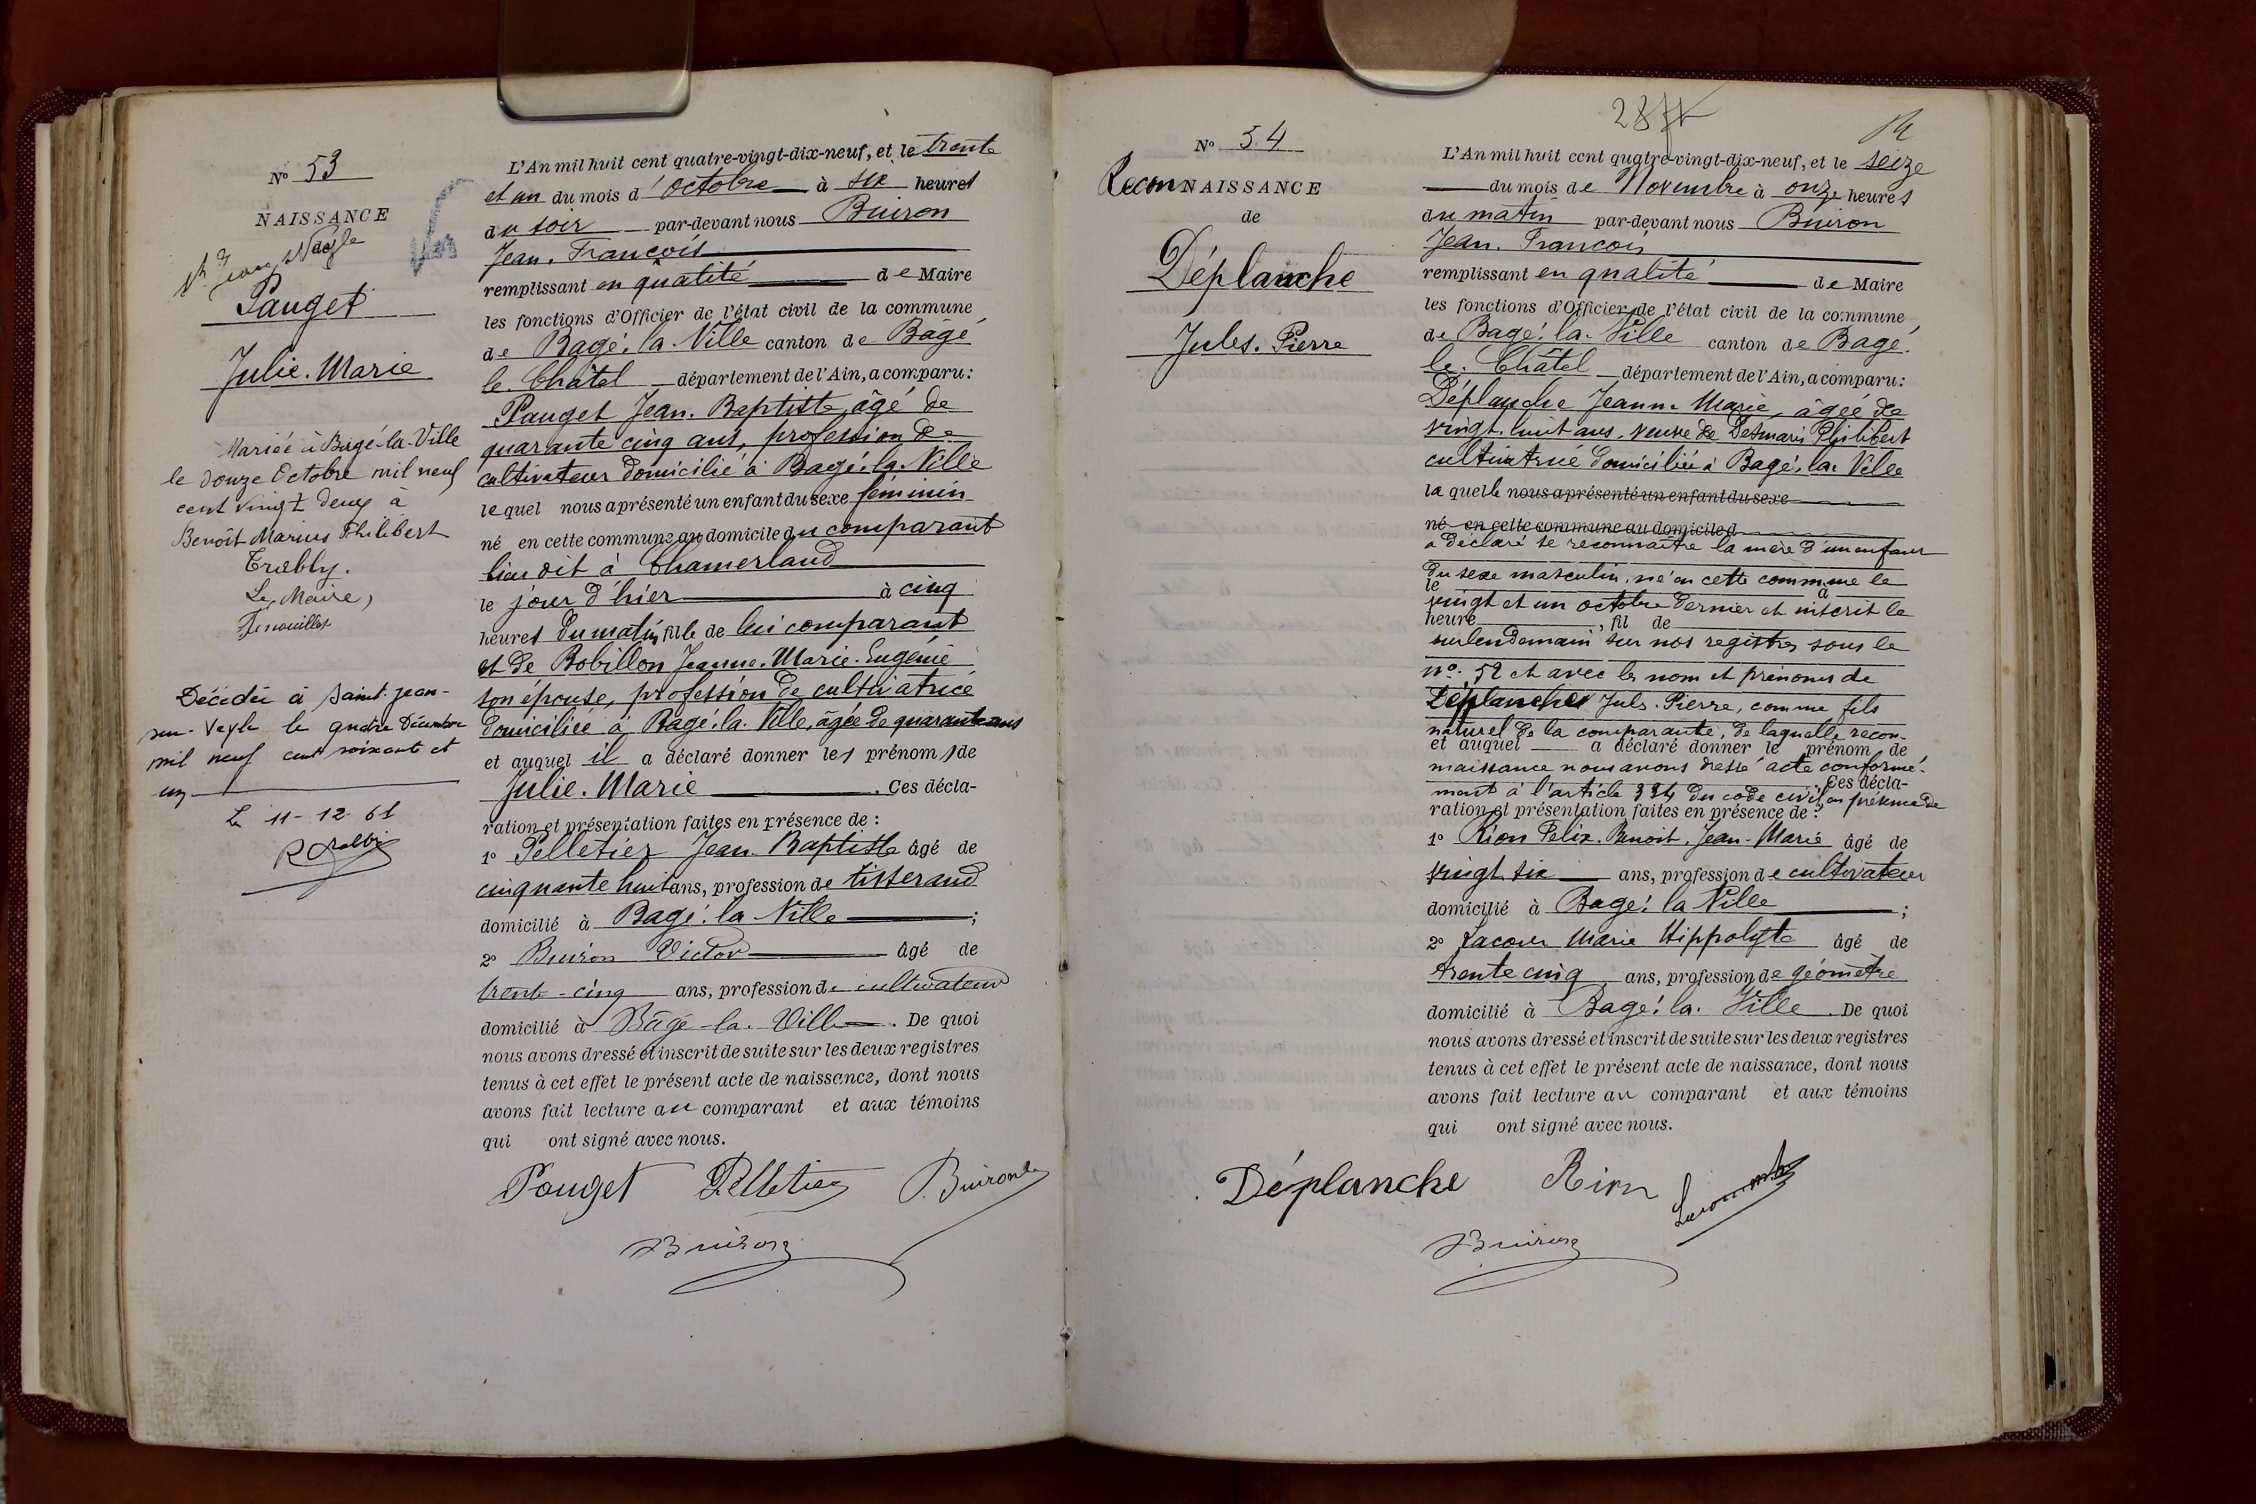 N° 53
NAISSANCE
Pauget
Julie. Marie
Mariée à Bagé-la-Ville
le douze Octobre mil neuf
cent vingt deux à
Benoît Marius Philibert
Le Maire,
Décédée à Saint-Jean-
sur-Veyle le quatre Décembre
mil neuf cent soixante et
un
Le 11-12-61
L'An mil huit cent quatre-vingt-dix-neuf, et le trente
et un du mois d'octobre à six heures
du soir par-devant nous Buiron
Jean. François
remplissant en qualité de Maire
les fonctions d'Officier de l'état civil de la commune
de Bagé. la. Ville canton de Bagé
le. Châtel département de l'Ain, a comparu:
Pauget Jean. Baptiste, âgé de
quarante cinq ans, profession de
cultivateur domicilié à Bagé. la. Ville
lequel nous a présenté un enfant du sexe féminin
né en cette commune au domicile du comparant
lieu dit à Chamerland
le jour d'hier à cinq
heures du matin, fille de lui comparant
et de Bobillon Jeanne. Marie. Eugénie
son épouse, profession de cultivatrice
domiciliée à Bagé. la. Ville, âgée de quarante ans
et auquel il a déclaré donner les prénoms de
Julie. Marie . Ces décla-
ration et présentation faites en présence de :
1° Pelletier Jean Baptiste âgé de
cinquante huit ans, profession de tisserand
domicilié à Bagé. la Ville ;
2° Buiron Victor âgé de
trente-cinq ans, profession de cultivateur
domicilié à Bâgé-la. Ville. De quoi
nous avons dressé et inscrit de suite sur les deux registres
tenus à cet effet le présent acte de naissance, dont nous
avons fait lecture au comparant et aux témoins
qui ont signé avec nous.
Pauget Pelletier Buiron
Buiron
N° 54
ReconNAISSANCE
de
Déplanche
Jules. Pierre
L'An mil huit cent quatre-vingt-dix-neuf, et le seize
du mois de Novembre à onze heures
du matin par-devant nous Buiron
Jean. François
remplissant en qualité de Maire
les fonctions d'Officier de l'état civil de la commune
de Bagé. la. Ville canton de Bagé.
le. Châtel département de l'Ain, a comparu:
Déplanche Jeanne Marie, âgée de
vingt. huit ans, veuve de Desmaris Philibert
cultivatrice domiciliée à Bagé. la. Ville
laquelle nous a présenté un enfant du sexe
né en cette commune au domicile d
a déclaré se reconnaître la mère d'un enfant
du sexe masculin, né en cette commune le
le à
vingt et un octobre dernier et inscrit le
heure , fil de
surlendemain sur nos registres sous le
n°. 52 et avec les nom et prénoms de
Déplanche Jules. Pierre, comme fils
naturel de la comparante, de laquelle recon-
et auquel a déclaré donner le prénom de
naissance nous avons dressé acte conformé-
. Ces décla-
ment à l'article 334 du code civil, en présence de
ration et présentation faites en présence de :
1° Rion Félix. Benoit. Jean-Marie âgé de
vingt six ans, profession de cultivateur
domicilié à Bagé. la Ville ;
2° Lacour Marie Hippolyte âgé de
trente cinq ans, profession de géomètre
domicilié à Bagé. la. Ville. De quoi
nous avons dressé et inscrit de suite sur les deux registres
tenus à cet effet le présent acte de naissance, dont nous
avons fait lecture au comparant et aux témoins
qui ont signé avec nous.
Déplanche Rion
Buiron